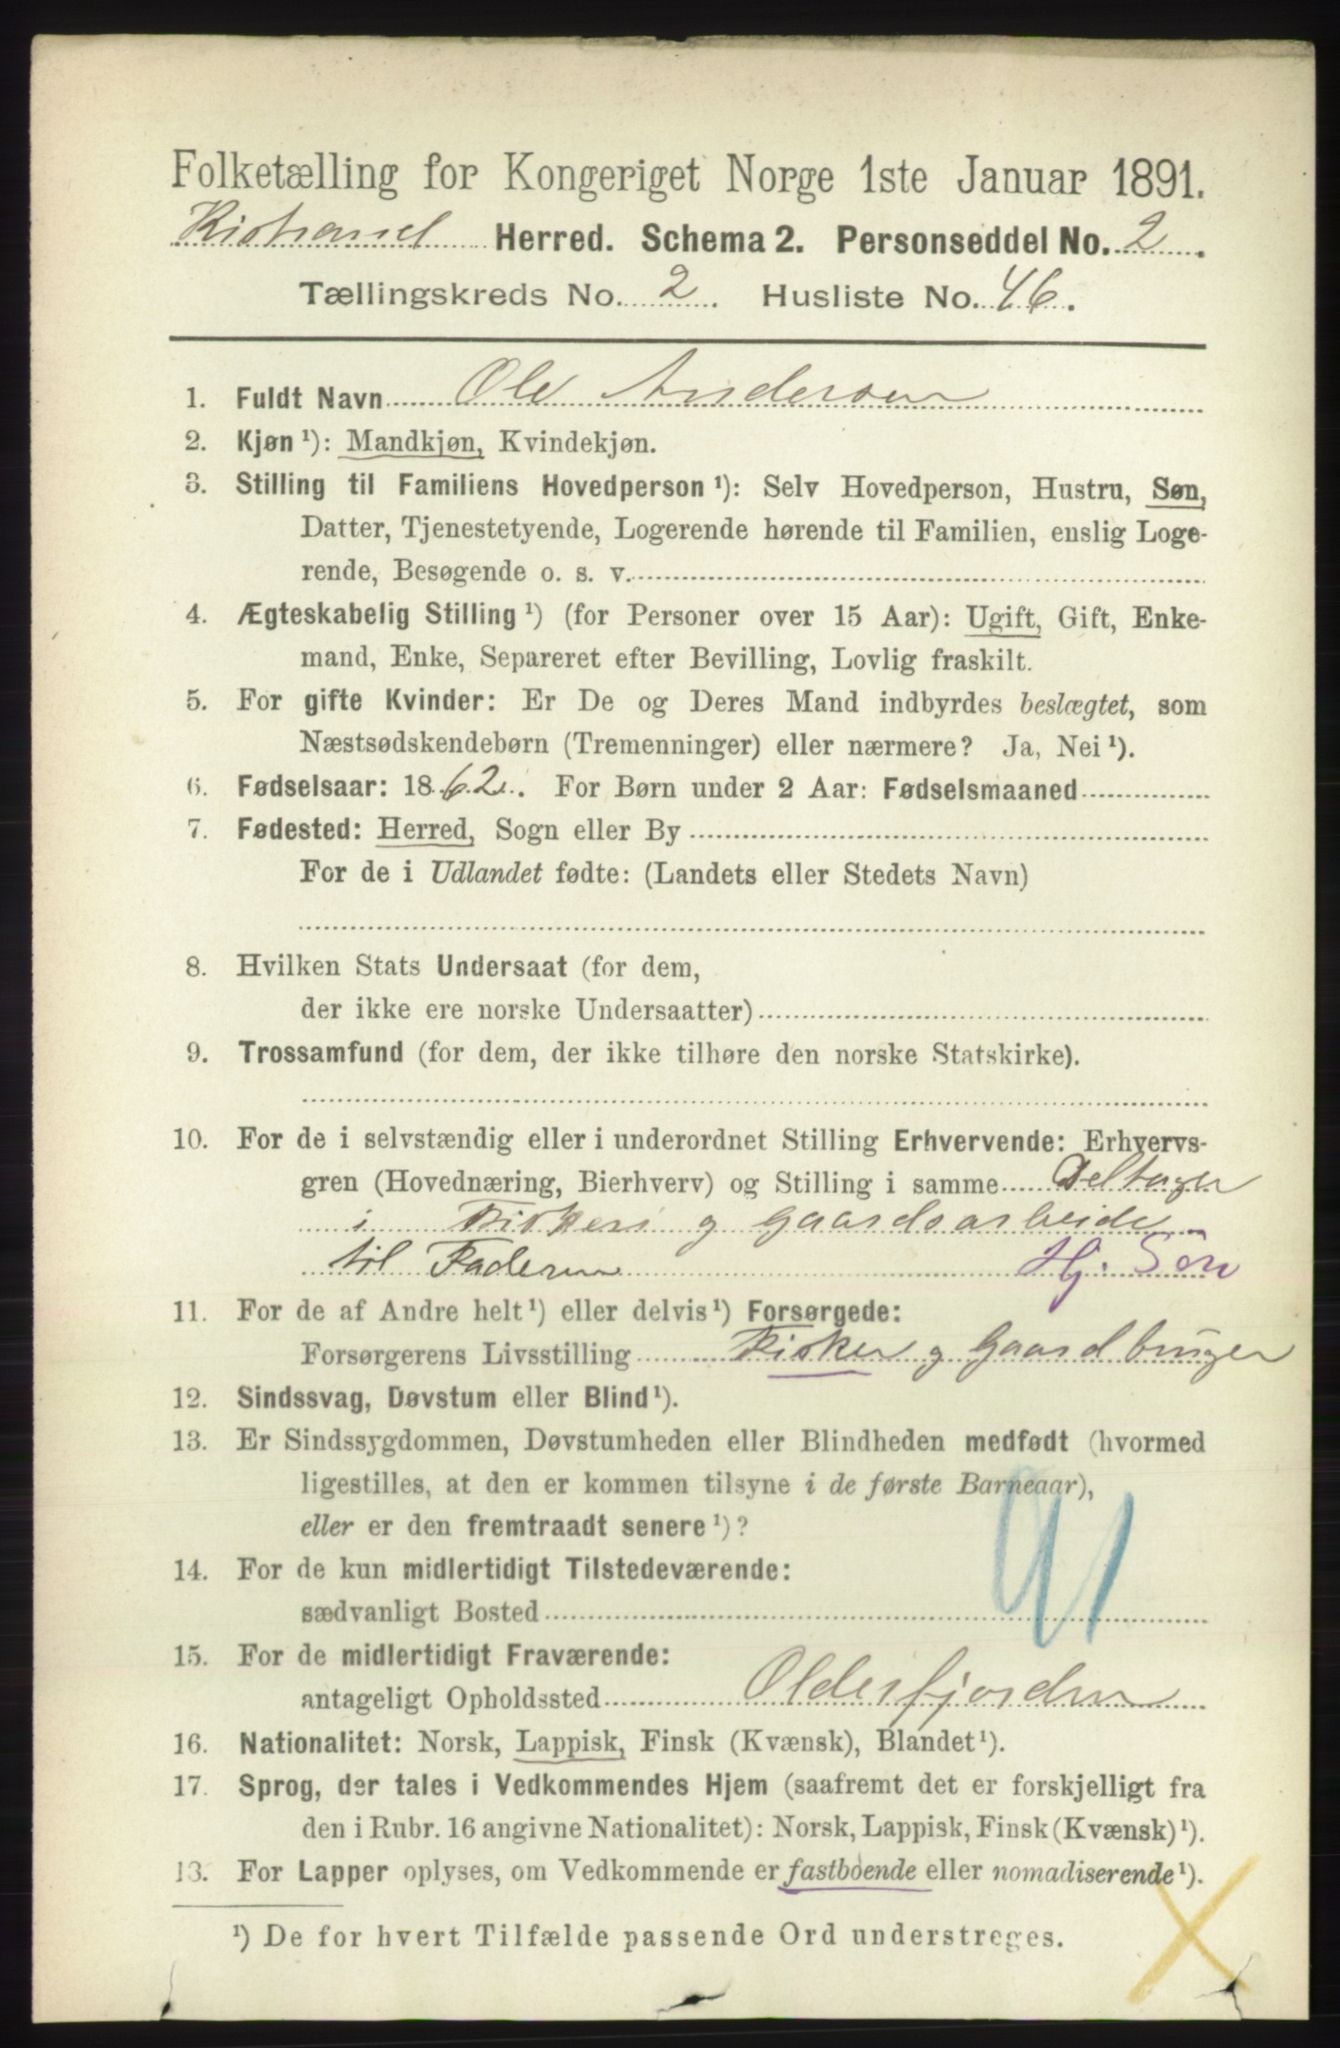 Folketælling for Kongeriget Norge 1ste Januar 1891.
Kistrand Herred. Schema 2. Personseddel No. 2.
Tællingskreds No. 2. Husliste No. 46.
1. Fuldt Navn Ole Andersen
2. Kjøn ¹): Mandkjøn, Kvindekjøn.
3. Stilling til Familiens Hovedperson ¹): Selv Hovedperson, Hustru, Søn,
Datter, Tjenestetyende, Logerende hørende til Familien, enslig Loge-
rende, Besøgende o. s. v.
4. Ægteskabelig Stilling ¹) (for Personer over 15 Aar): Ugift, Gift, Enke-
mand, Enke, Separeret efter Bevilling, Lovlig fraskilt.
5. For gifte Kvinder: Er De og Deres Mand indbyrdes beslægtet, som
Næstsødskendebørn (Tremenninger) eller nærmere? Ja, Nei ¹).
6. Fødselsaar: 1862. For Børn under 2 Aar: Fødselsmaaned
7. Fødested: Herred, Sogn eller By
For de i Udlandet fødte: (Landets eller Stedets Navn)
8. Hvilken Stats Undersaat (for dem,
der ikke ere norske Undersaatter)
9. Trossamfund (for dem, der ikke tilhøre den norske Statskirke).
10. For de i selvstændig eller i underordnet Stilling Erhvervende: Erhvervs-
gren (Hovednæring, Bierhverv) og Stilling i samme Deltager
i Fiskeri g Gaardsarbeide
til Faderen Hj. Søn
11. For de af Andre helt ¹) eller delvis ¹) Forsørgede:
Forsørgerens Livsstilling Fisker g Gaardbruger
12. Sindssvag, Døvstum eller Blind ¹).
13. Er Sindssygdommen, Døvstumheden eller Blindheden medfødt (hvormed
ligestilles, at den er kommen tilsyne i de første Barneaar),
eller er den fremtraadt senere ¹)?
91
14. For de kun midlertidigt Tilstedeværende:
sædvanligt Bosted
15. For de midlertidigt Fraværende:
antageligt Opholdssted Olderfjorden
16. Nationalitet: Norsk, Lappisk, Finsk (Kvænsk), Blandet ¹).
17. Sprog, der tales i Vedkommendes Hjem (saafremt det er forskjelligt fra
den i Rubr. 16 angivne Nationalitet): Norsk, Lappisk, Finsk (Kvænsk) ¹).
18. For Lapper oplyses, om Vedkommende er fastboende eller nomadiserende ¹).
¹) De for hvert Tilfælde passende Ord understreges.